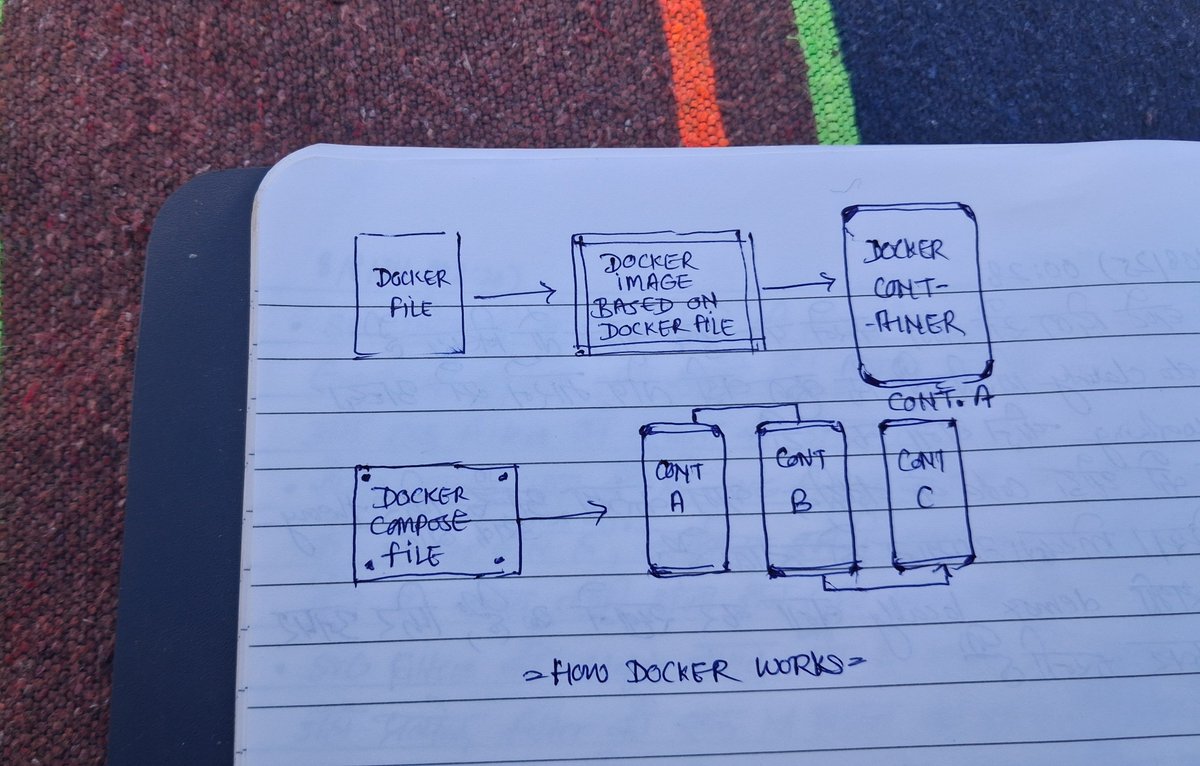 DOCKER
FILE
DOCKER
IMAGE
BASED ON
DOCKER FILE
DOCKER
CONT-
-AINER
CONT. A
DOCKER
COMPOSE
FILE
CONT
A
CONT
B
CONT
C
=HOW DOCKER WORKS=